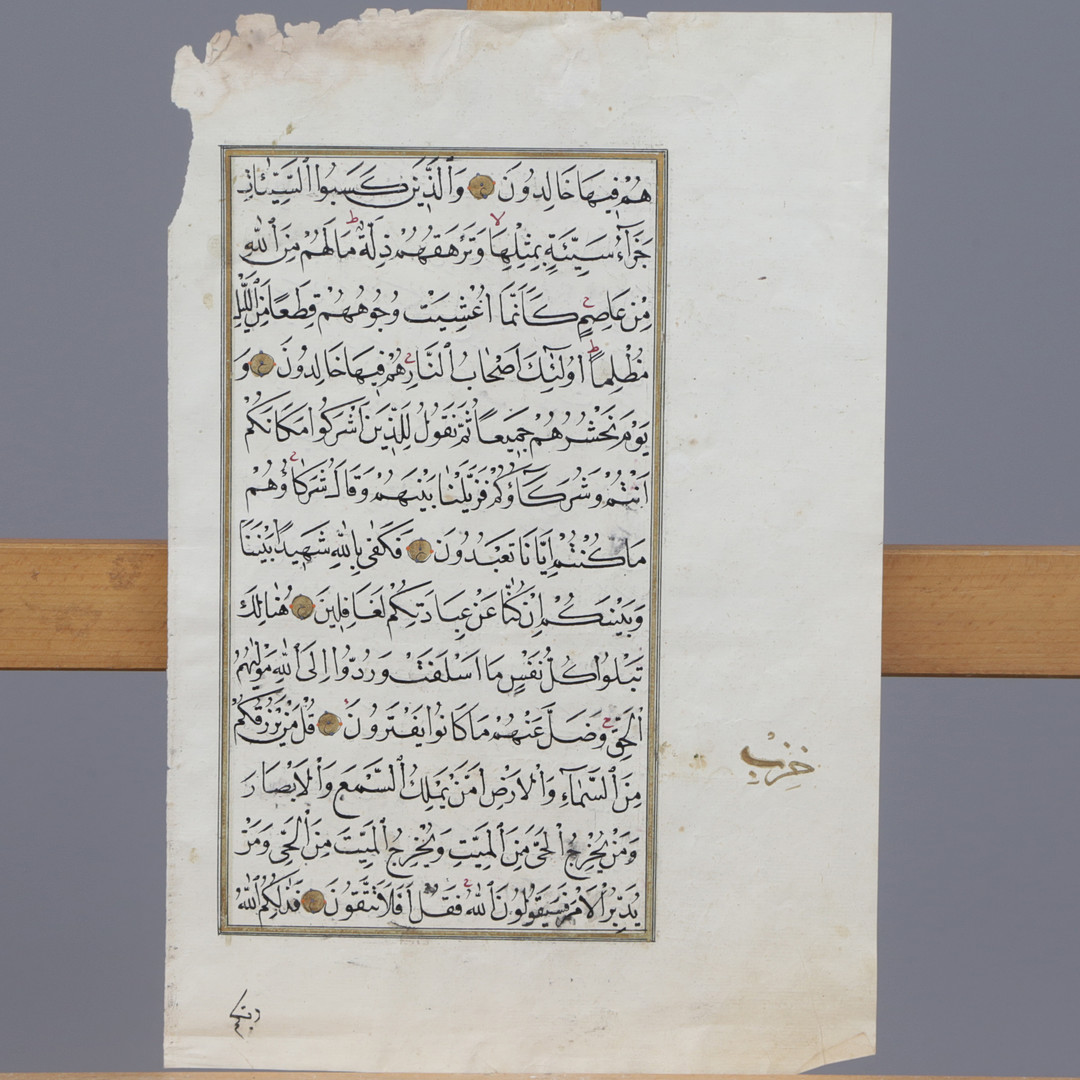 هُمْ فِيهَا خَالِدُونَ وَٱلَّذِينَ كَسَبُوا ٱلسَّيِّـَٔاتِ
جَزَآءُ سَيِّئَةٍ بِمِثْلِهَا وَتَرْهَقُهُمْ ذِلَّةٌ مَا لَهُمْ مِنَ ٱللّٰهِ
مِنْ عَاصِمٍ كَاَنَّمَا اُغْشِيَتْ وُجُوهُهُمْ قِطَعًا مِنَ ٱلَّيْلِ
مُظْلِمًا اُولٰٓئِكَ اَصْحَابُ ٱلنَّارِ هُمْ فِيهَا خَالِدُونَ وَ
يَوْمَ نَحْشُرُهُمْ جَمِيعًا ثُمَّ نَقُولُ لِلَّذِينَ اَشْرَكُوا مَكَانَكُمْ
اَنْتُمْ وَشُرَكَآؤُكُمْ فَزَيَّلْنَا بَيْنَهُمْ وَقَالَ شُرَكَاؤُهُمْ
مَا كُنْتُمْ اِيَّانَا تَعْبُدُونَ فَكَفٰى بِٱللّٰهِ شَهِيدًا بَيْنَنَا
وَبَيْنَكُمْ اِنْ كُنَّا عَنْ عِبَادَتِكُمْ لَغَافِلِينَ هُنَالِكَ
تَبْلُوا كُلُّ نَفْسٍ مَا اَسْلَفَتْ وَرُدُّوا اِلَى ٱللّٰهِ مَوْلٰيهُمُ
ٱلْحَقِّ وَضَلَّ عَنْهُمْ مَا كَانُوا يَفْتَرُونَ قُلْ مَنْ يَرْزُقُكُمْ
مِنَ ٱلسَّمَآءِ وَٱلْاَرْضِ اَمَّنْ يَمْلِكُ ٱلسَّمْعَ وَٱلْاَبْصَارَ
وَمَنْ يُخْرِجُ ٱلْحَىَّ مِنَ ٱلْمَيِّتِ وَيُخْرِجُ ٱلْمَيِّتَ مِنَ ٱلْحَىِّ وَمَنْ
يُدَبِّرُ ٱلْاَمْرَ فَسَيَقُولُونَ ٱللّٰهُ فَقُلْ اَفَلَا تَتَّقُونَ فَذٰلِكُمُ ٱللّٰهُ
حِزْب
ربكم